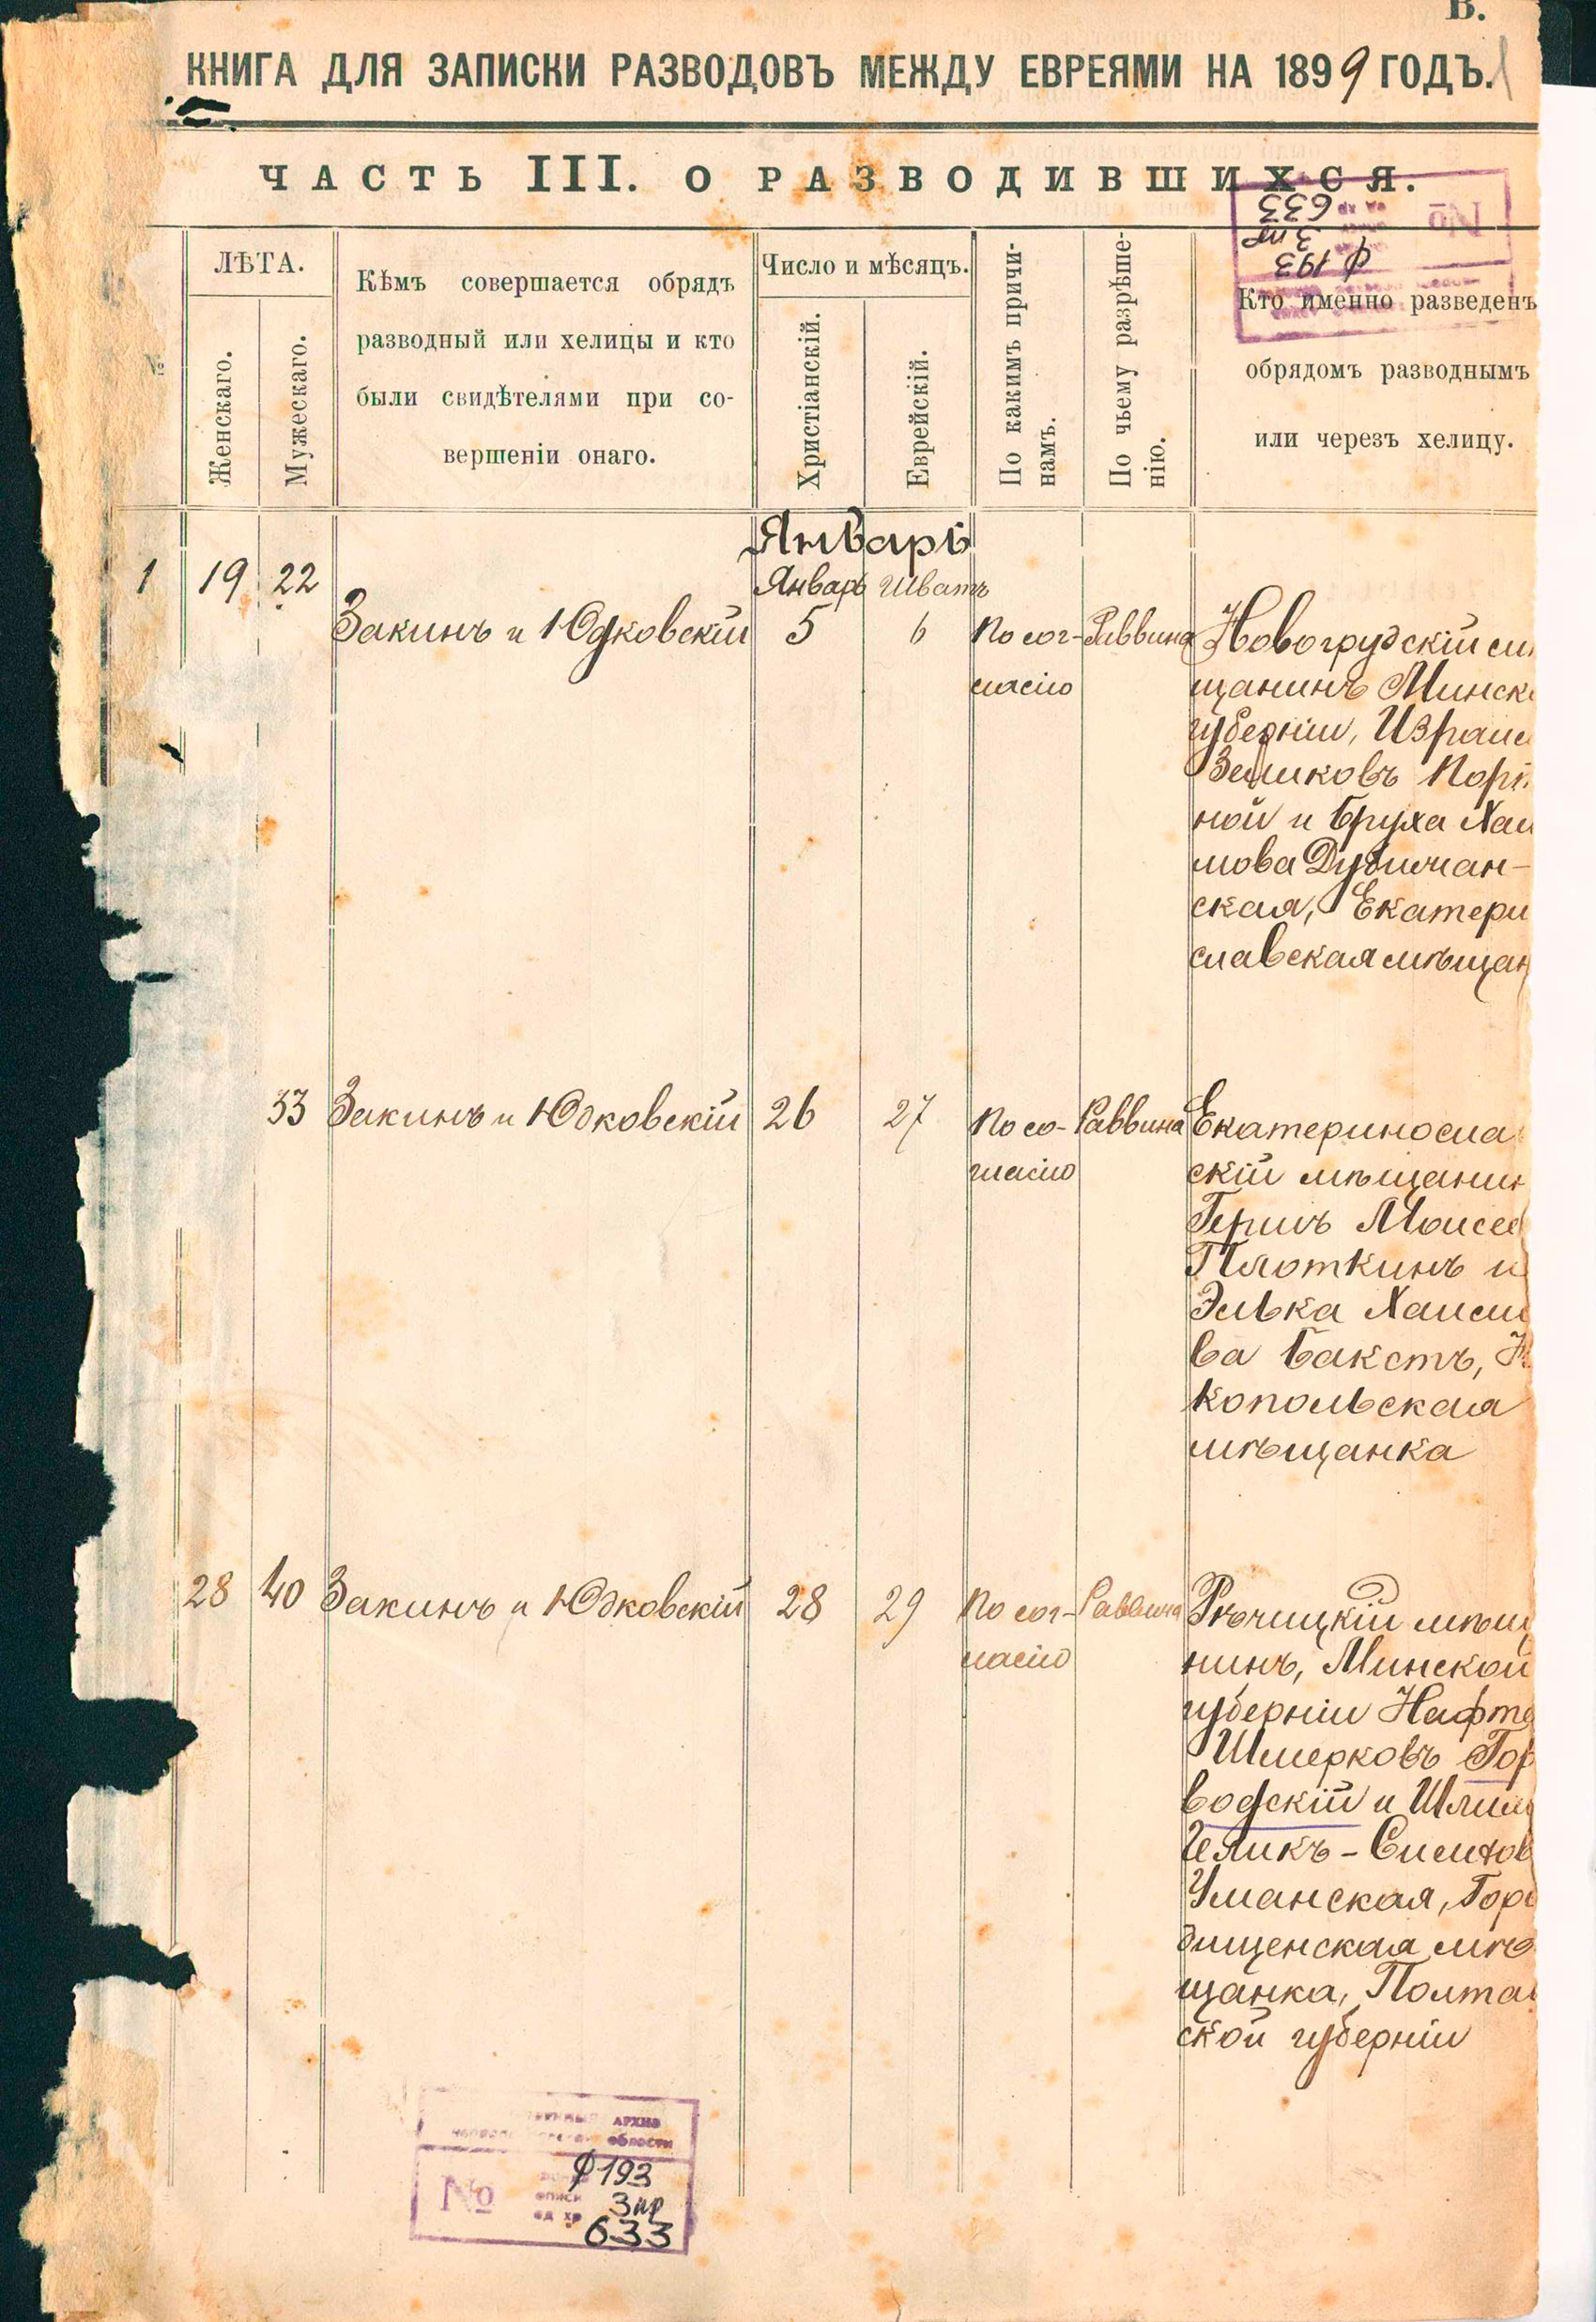 В.
КНИГА ДЛЯ ЗАПИСКИ РАЗВОДОВЪ МЕЖДУ ЕВРЕЯМИ НА 1899 ГОДЪ.
ЧАСТЬ III. О РАЗВОДИВШИХСЯ.
№
ЛѢТА.
Женскаго.
Мужескаго.
Кѣмъ совершается обрядъ
разводный или хелицы и кто
были свидѣтелями при со-
вершеніи онаго.
Число и мѣсяцъ.
Христіанскій.
Еврейскій.
По какимъ причи-
намъ.
По чьему разрѣше-
нію.
Кто именно разведенъ
обрядомъ разводнымъ
или черезъ хелицу.
№
Ф 193
3 пр
633
Январь
Январь Шватъ
1 19 22 Закинъ и Юдковскій 5 6 По сог-
ласію
Раввина
Новогрудскій
щанинъ Минск
губерніи, Израи
Зеликовъ Порт
ной и Бруха Хаи
мова
ская, Екатери
славская мѣщан
33 Закинъ и Юдковскій 26 27 По со-
гласію
Раввина
Екатеринослав
скій мѣщанин
Гершъ Моисее
Плоткинъ и
Элька Хаимо
ва Бакстъ, Н
копольская
мѣщанка
28 40 Закинъ и Юдковскій 28 29 По сог-
ласію
Раввина
Рѣчицкій мѣщ
нинъ, Минской
губерніи Нафта
Шмерковъ Гор
водскій и
Уманская, Горо
дищенская мѣ
щанка, Полтав
ской губерніи
АРХИВ
области
№
описи
ед хр
Ф 193
3 пр
633